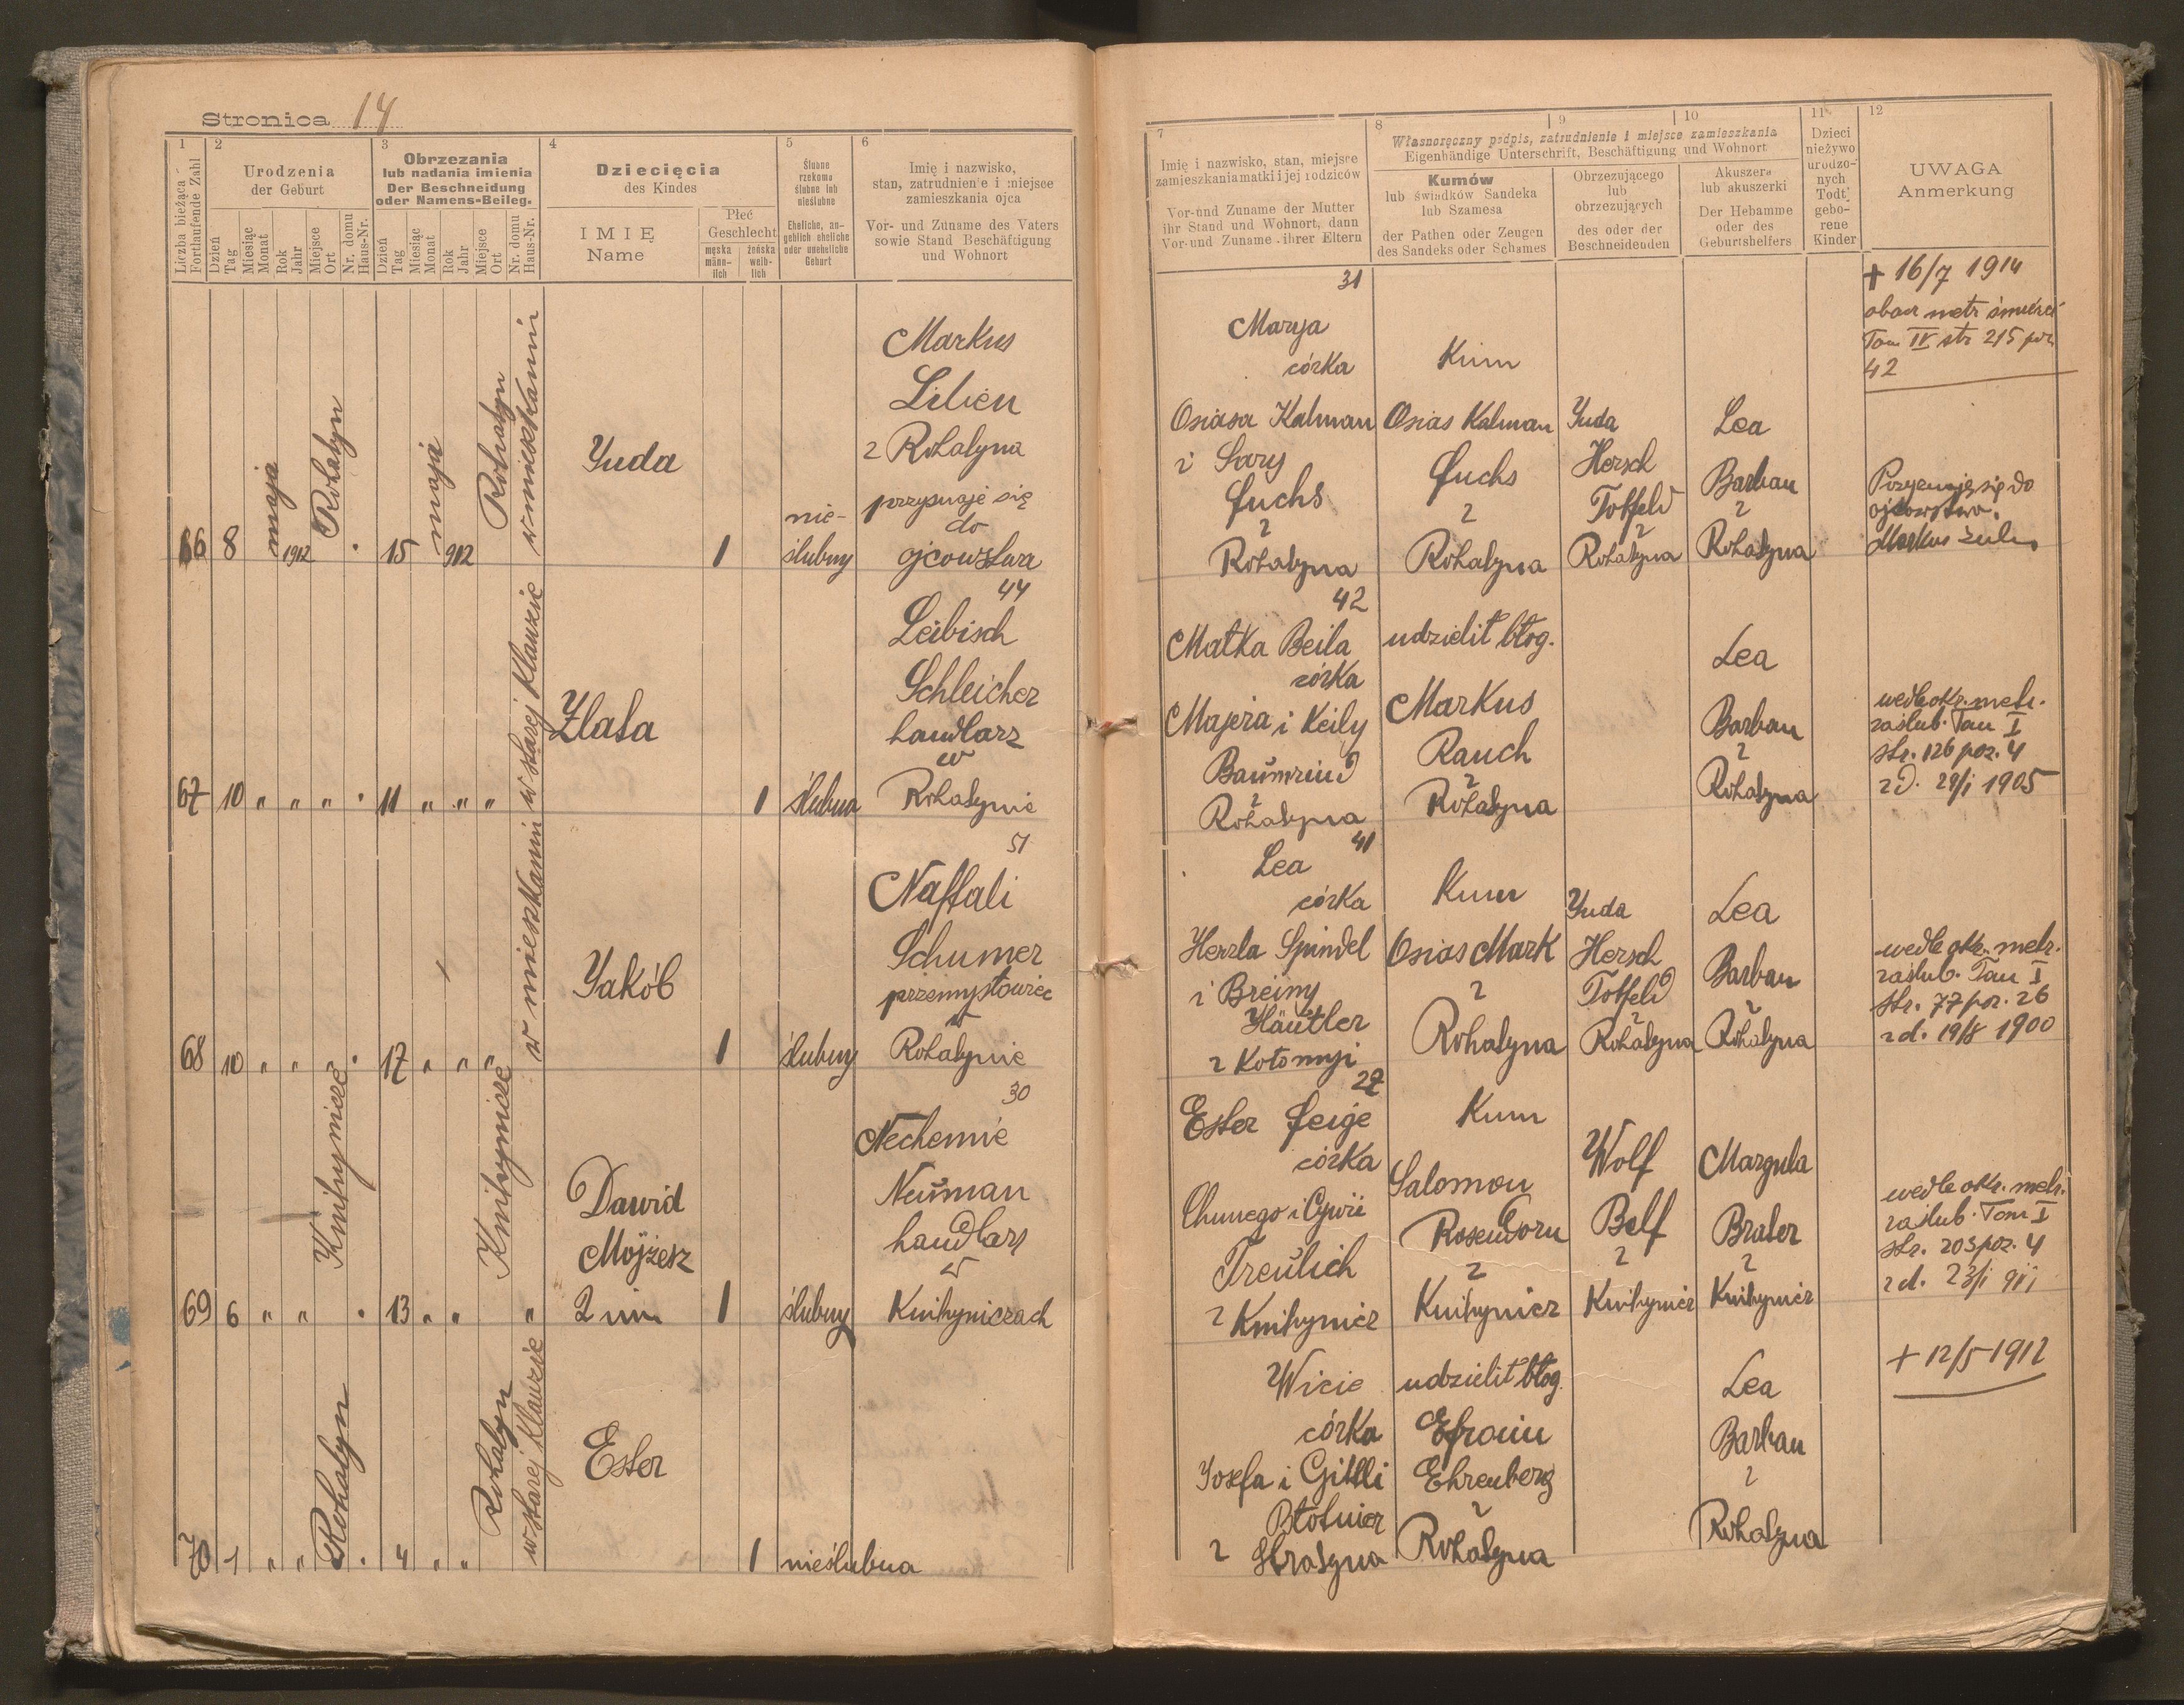 Stronica 14
1
Liczba bieżąca
Fortlaufende Zahl
2
Urodzenia
der Geburt
Dzień
Tag
Miesiąc
Monat
Rok
Jahr
Miejsce
Ort
Nr. domu
Haus-Nr.
3
Obrzezania
lub nadania imienia
Der Beschneidung
oder Namens-Beileg.
Dzień
Tag
Miesiąc
Monat
Rok
Jahr
Miejsce
Ort
Nr. domu
Haus-Nr.
4
Dziecięcia
des Kindes
IMIĘ
Name
Płeć
Geschlecht
męska
männ-
lich
żeńska
weib-
lich
5
Ślubne
rzekomo
ślubne lub
nieślubne
Eheliche, an-
geblich eheliche
oder uneheliche
Geburt
6
Imię i nazwisko,
stan, zatrudnienie i miejsce
zamieszkania ojca
Vor- und Zuname des Vaters
sowie Stand Beschäftigung
und Wohnort
7
Imię i nazwisko, stan, miejsce
zamieszkania matki i jej rodziców
Vor- und Zuname der Mutter
ihr Stand und Wohnort, dann
Vor- und Zuname ihrer Eltern
8
9
10
Własnoręczny podpis, zatrudnienie i miejsce zamieszkania
Eigenhändige Unterschrift, Beschäftigung und Wohnort
Kumów
lub świadków Sandeka
lub Szamesa
der Pathen oder Zeugen
des Sandeks oder Schames
Obrzezującego
lub
obrzezujących
des oder der
Beschneidenden
Akuszera
lub akuszerki
Der Hebamme
oder des
Geburtshelfers
11
Dzieci
nieżywo
urodzo-
nych
Todt
gebo-
rene
Kinder
12
UWAGA
Anmerkung
66 8 maja 1912 Rohatyn 15 maja 912 Rohatyn
w mieszkaniu
Yuda
1
nie-
ślubny
Markus
Lilien
z Rohatyna
przyznaje się
do
ojcowstwa
31
Marya
córka
Osiasa Kalman
i Sary
Fuchs
z
Rohatyna
Kum
Osias Kalman
Fuchs
z
Rohatyna
Yuda
Hersch
Toffeld
z
Rohatyna
Lea
Barban
z
Rohatyna
+ 16/7 1914
obacz metr śmierci
Tom IV str 215 poz
42
Przyznaję się do
ojcowstwa.
Markus
67 10 " " " " 11 " " "
w starej Klauzie
Zlata
1
ślubna
44
Leibisch
Schleicher
handlarz
w
Rohatynie
42
Matka Beila
córka
Majera i Keily
Baumrind
z
Rohatyna
udzielił błog.
Markus
Rauch
z
Rohatyna
Lea
Barban
z
Rohatyna
wedle okr. metr.
zaślub. Tom I
str. 126 poz. 4
z d. 29/1 1905
68 10 " " " " 17 " " "
w mieszkaniu
Yakób
1
ślubny
51
Naftali
Schumer
przemysłowiec
w
Rohatynie
41
Lea
córka
Herzla Spindel
i Breiny
Häutler
z Kołomyi
Kum
Osias Mark
z
Rohatyna
Yuda
Hersch
Toffeld
z
Rohatyna
Lea
Barban
z
Rohatyna
wedle okr. metr.
zaślub. Tom I
str. 77 poz. 26
z d. 19/8 1900
69 6 " " Knihynicze " 13 " " Knihynicze "
Dawid
Mojżesz
2 im
1
ślubny
30
Nechemie
Neuman
handlarz
w
Knihyniczach
27
Ester Feige
córka
Chunego i Cywii
Treulich
z Knihynicz
Kum
Salomon
Rosendorn
z
Knihynicz
Wolf
Belf
z
Knihynicz
Margula
Brater
z
Knihynicz
wedle okr. metr.
zaślub. Tom I
str. 203 poz. 4
z d. 23/1 911
70 1 " " Rohatyn " 4 " " Rohatyn
w starej Klauzie
Ester
1
nieślubna
Wicie
córka
Josefa i Gittli
Błotnier
z Stratyna
udzielił błog.
Efroim
Ehrenberg
z
Rohatyna
Lea
Barban
z
Rohatyna
+ 12/5 1912